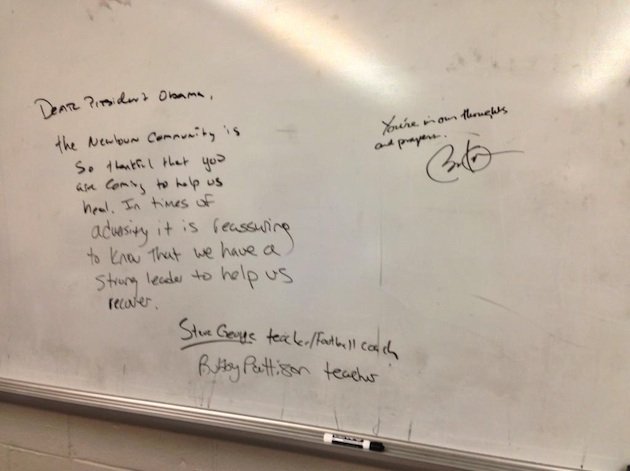 Dear President Obama,
the Newtown Community is
so thankful that you
are coming to help us
heal. In times of
adversity it is reassuring
to know that we have a
strong leader to help us
recover.
Steve George teacher/football coach
Bobby Pattison teacher
You're in our thoughts
and prayers.